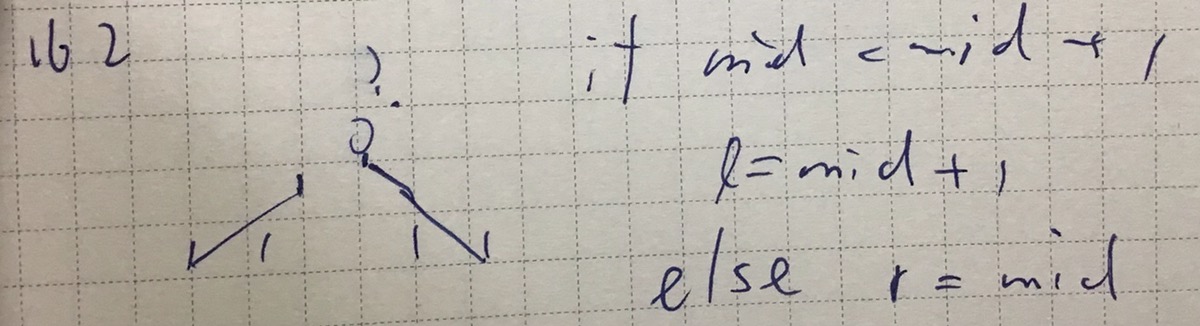 162
?
if mid < mid + 1
l = mid + 1
else r = mid